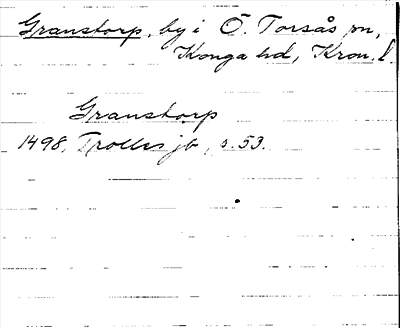 Granstorp, by i Ö. Torsås sn,
Konga hd, Kron. l.
Granstorp
1498, Trolles jb, s. 53.